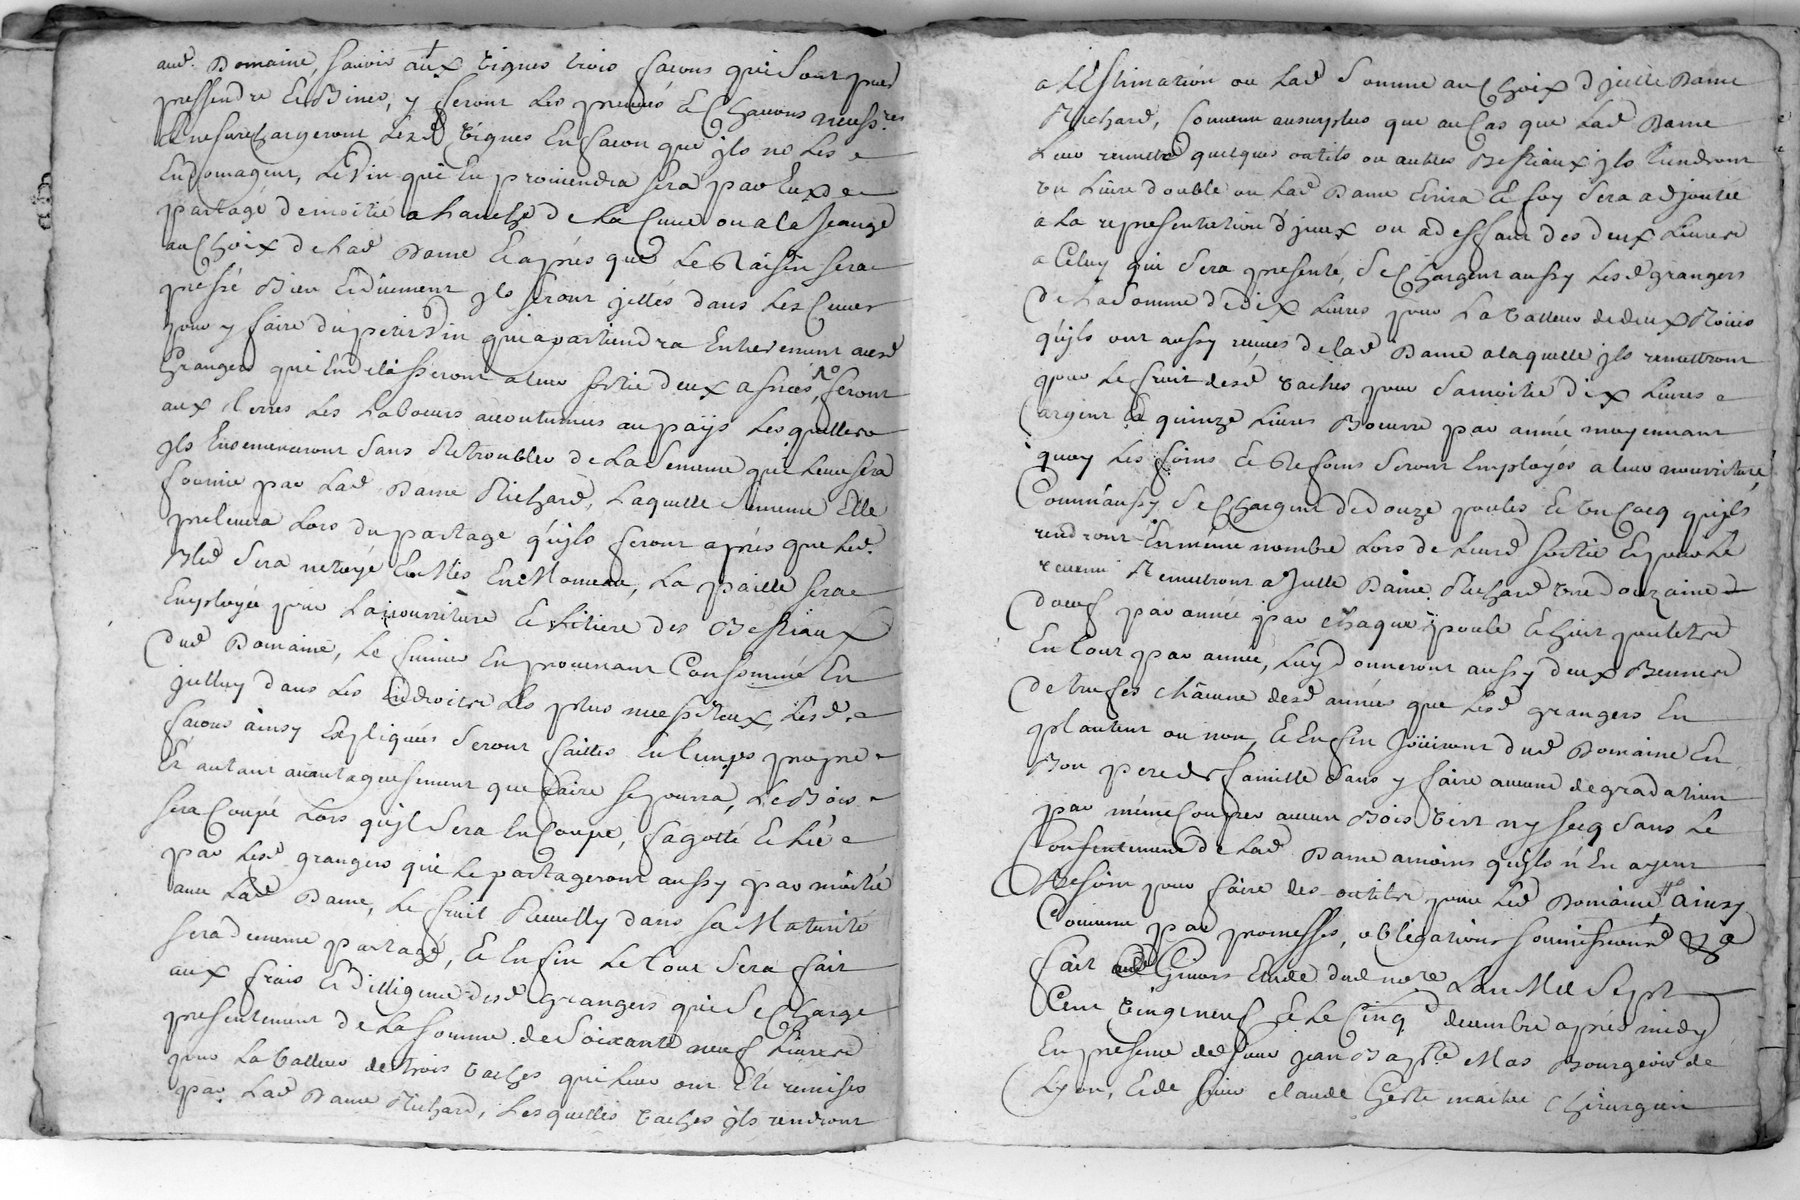 aud. Domaine, sauoir aux vignes trois façons qui sont
, y feront les preuues & chauons neuss.res
& ne surchargeront lesd. vignes en façon que jls ne les
endomagent, le vin qui en prouiendra sera par eux
partagé de moitié a l'anche de la cuue ou a la jeauge
au choix de lad. Dame & aprés que le raisin sera
pressé bien & düement jls seront jettés dans les cuues
pour y faire du petit vin qui apartiendra entierement ausd.
grangers qui en delaisseront a leur sortie deux asnées, feront
aux terres les labours accoutumés au païs lesquelles
jls ensemenceront sans retroubler de la semence qui leur sera
fournie par lad. Dame Richard, laquelle semence elle
preleuera lors du partage qu'jls feront aprés que led.
bled sera netoyé & mis en monceau, la paille sera
employée pour la nourriture & litiere des bestiaux
dud. Domaine, le fumier en prouenant consommé en
jcelluy dans les endroits les plus nessessiteux, lesd.
façons ainsy expliquées seront faittes en temps propre
& autant auantageusement que faire se pourra, le bois
sera coupé lors qu'jl sera en coupe, fagotté & lié
par lesd. grangers qui le partageront aussy par moitié
auec lad. Dame, le fruit recueilly dans sa maturité
sera de meme partagé, & enfin le tout sera fait
aux frais & dilligence desd. grangers qui se charge
presentement de la somme de soixante neuf liures
pour la valleur de trois vaches qui leur ont eté remises
par lad. Dame Richard, lesquelles vaches jls rendront
a l'estimation ou lad. somme au choix d'jcelle Dame
Richard, conuenu au surplus que au cas que lad. Dame
leur remette quelques outils ou autres bestiaux jls tiendront
vn liure double ou lad. Dame ecrira & foy sera adjoutée
a la representation d'jceux ou a deffaut des deux liures
a celuy qui sera presenté, se chargent aussy lesd. grangers
de la somme de dix liures pour la valleur de deux
qu'jls ont aussy receues de lad. Dame a laquelle jls remettront
pour le fruit desd. vaches pour sa moitié dix liures
argent & quinze liures beurre par année moyennant
quoy les foins & refoins seront employés a leur nourriture,
comm'aussy se chargent de douze poules & vn cocq qu'jls
rendront en même nombre lors de leurd. sortie & pour le
reuenu remettront a jcelle Dame Richard vne douzaine
d'oeufs par année par chaque poule & huit poulets
en tout par année, luy donneront aussy deux bennes
de truffes chacune desd. années que lesd. grangers en
plantent ou non, & enfin joüiront dud. Domaine en
bon pere de famille sans y faire aucune degradation
par même couper aucun bois vert ny secq sans le
consentement de lad. Dame a moins qu'jls n'en ayent
besoin pour faire des outils pour led. Domaine # ainsy
conuenu par promesses, obligations soumissions &a
fait aud. Giuors etude dud. no.re l'an mil sept
cent vingt neuf & le cinq.e decembre aprés midy
en presence de sieur jean Bap.te Mas bourgeois de
Lyon, & de sieur claude Geste maitre chirurgien